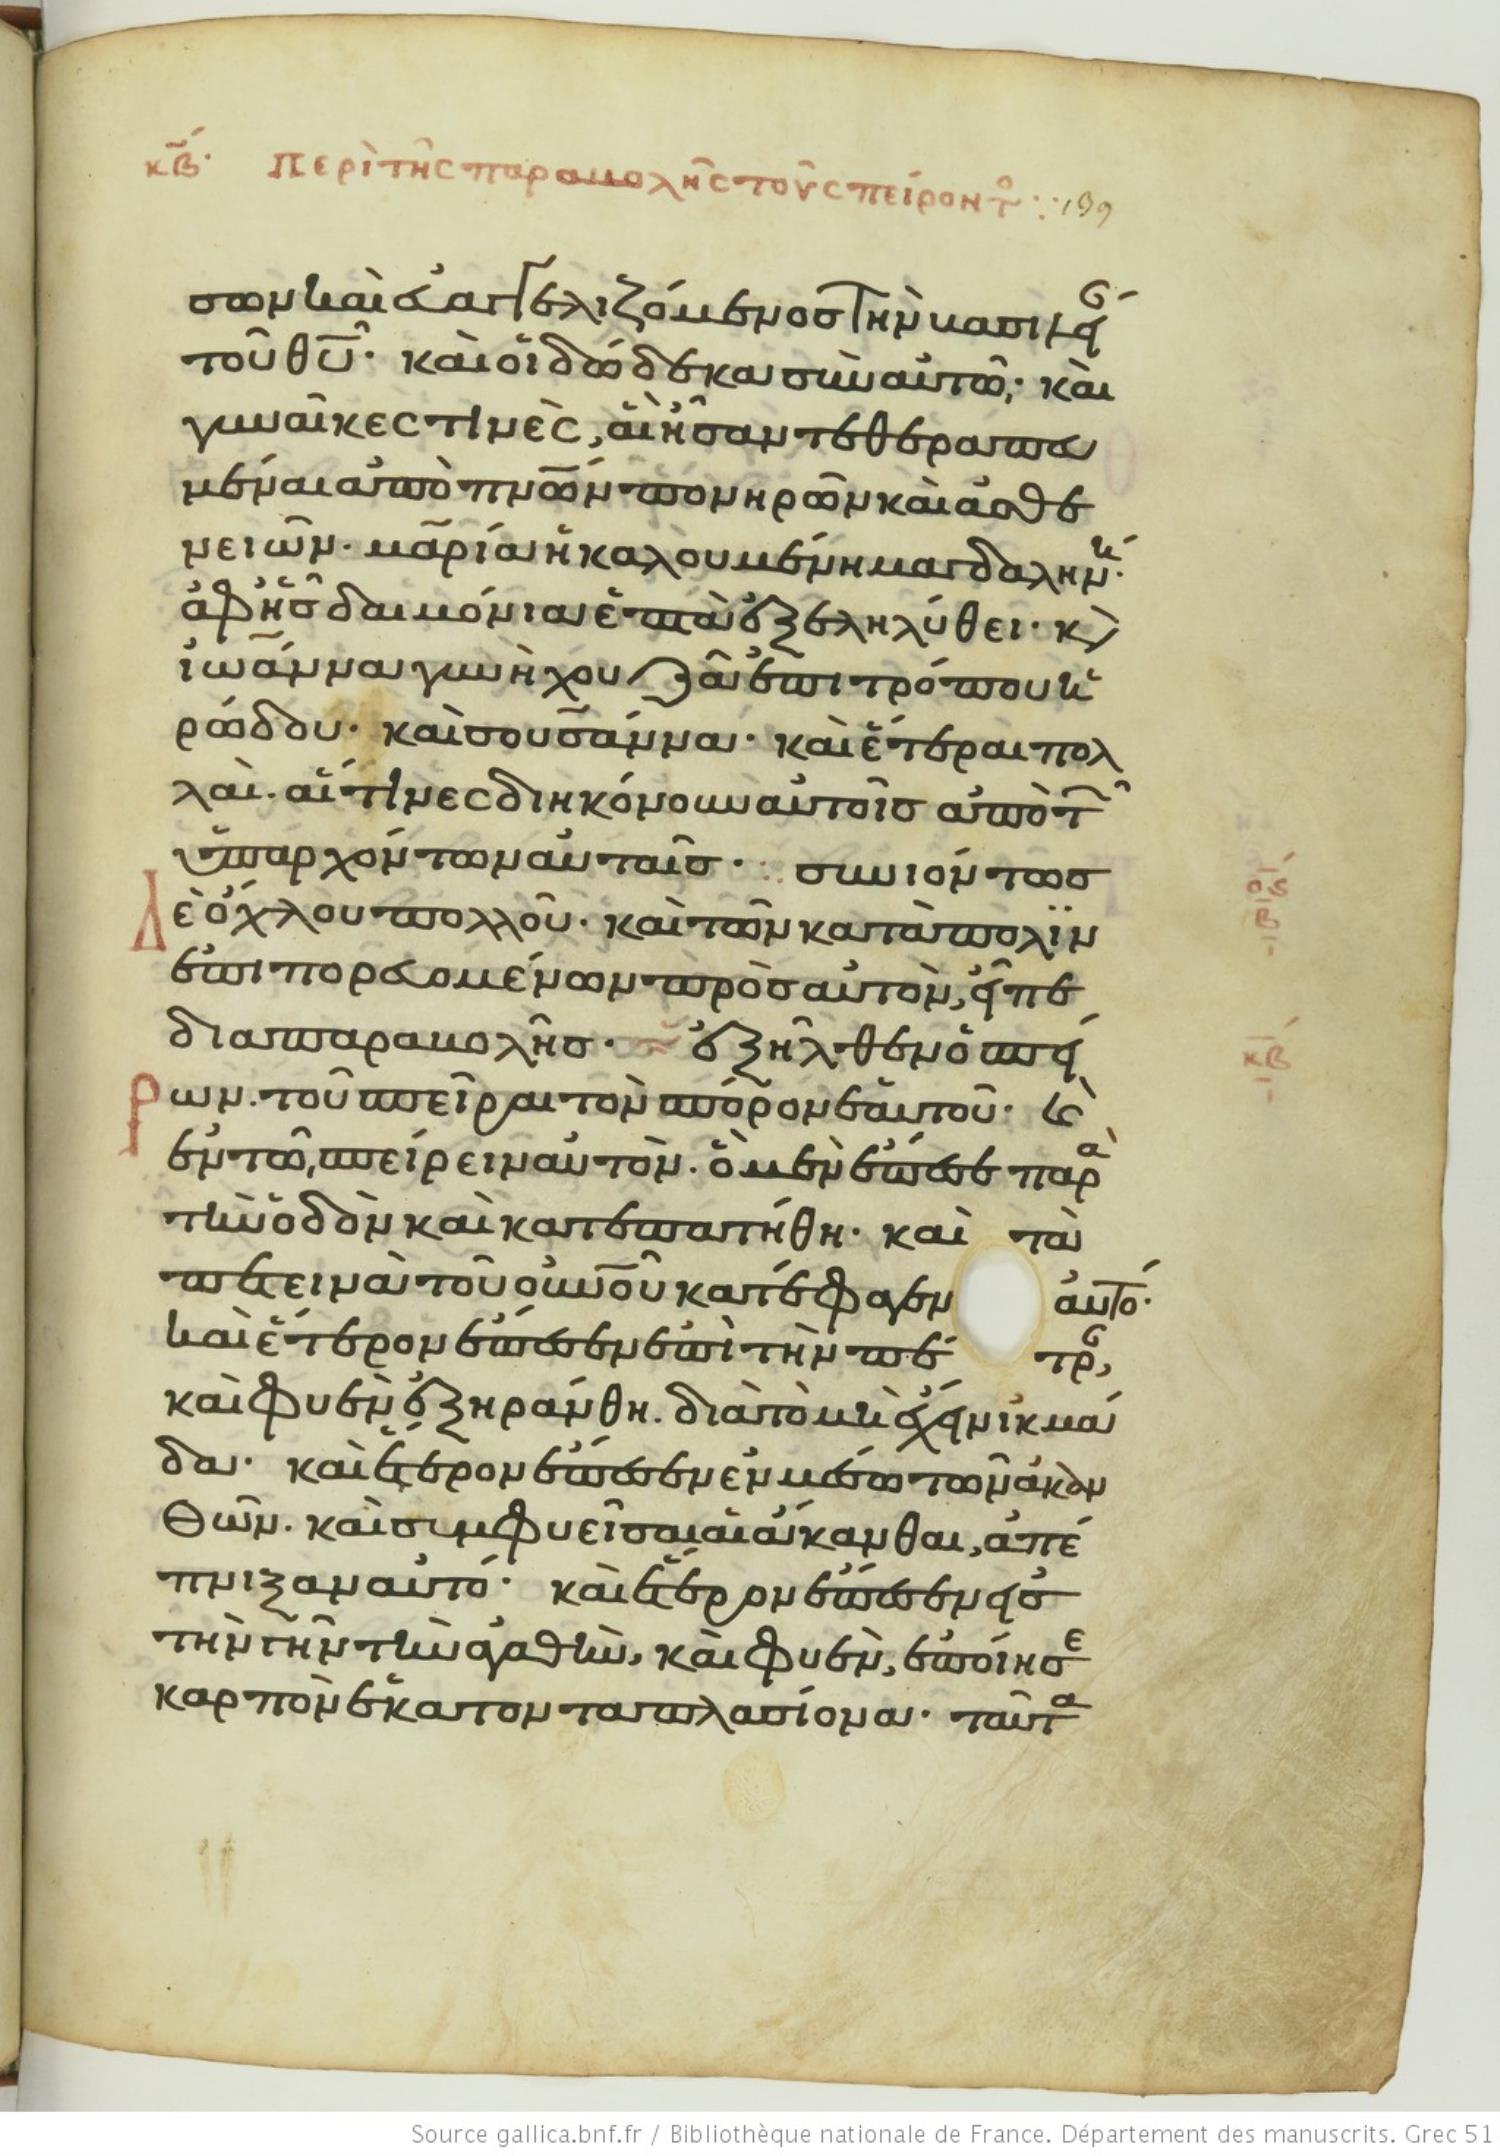 κβ· Περὶ τῆς παραβολῆς τοῦ σπείροντο :· 199
σων καὶ εὐαγγελιζόμενος τὴν βασιλεί
τοῦ θυ· καὶ οἱ δώδεκα σὺν αὐτῶ· καὶ
γυναῖκες τινὲς, αἳ ἦσαν τεθεραπευ
μέναι ἀπὸ πνων πονηρῶν καὶ ἀσθε
νειῶν· μαρία ἡ καλουμένη μαγδαλην·
ἀφ ἧς δαιμόνια ἑπτὰ ἐξεληλύθει· κ
ἰωάννα γυνὴ χουζᾶ ἐπιτρόπου ἡ
ρώδου· καὶ σουσάννα· καὶ ἕτεραι πολ
λαὶ· αἵτινες διηκόνουν αὐτοῖς ἀπὸ τ
ὑπαρχόντων αὐταῖς· συνιόντος
δὲ ὄχλου πολλοῦ· καὶ τῶν κατὰ πόλϊν
οϛ
β
ἐπιπορευομένων πρὸς αὐτὸν, εἶπε
διὰ παραβολῆς· ἐξῆλθεν ὁ σπεί
κβ
ρων· τοῦ σπεῖραι τὸν σπόρον ἑαυτοῦ· κ
ἐν τῶ σπείρειν αὐτὸν· ὃ μὲν ἔπεσε παρὰ
τὴν ὁδὸν καὶ κατεπατήθη· καὶ τὰ
πετεινὰ τοῦ οὐνοῦ κατέφαγεν αὐτό·
καὶ ἕτερον ἔπεσεν ἐπὶ τὴν πέτρ,
καὶ φυὲν ἐξηράνθη· διὰ τὸ μὴ ἔχειν ἰκμά
δα· καὶ ἕτερον ἔπεσεν ἐν μέσω τῶν ἀκαν
θῶν· καὶ συμφυεῖσαι αἱ ἄκανθαι, ἀπέ
πνιξαν αὐτό· καὶ ἕτερον ἔπεσεν εἰς
τὴν γῆν τὴν ἀγαθὴν, καὶ φυὲν, ἐποίησε
καρπὸν ἑκατονταπλασίονα· ταῦτα